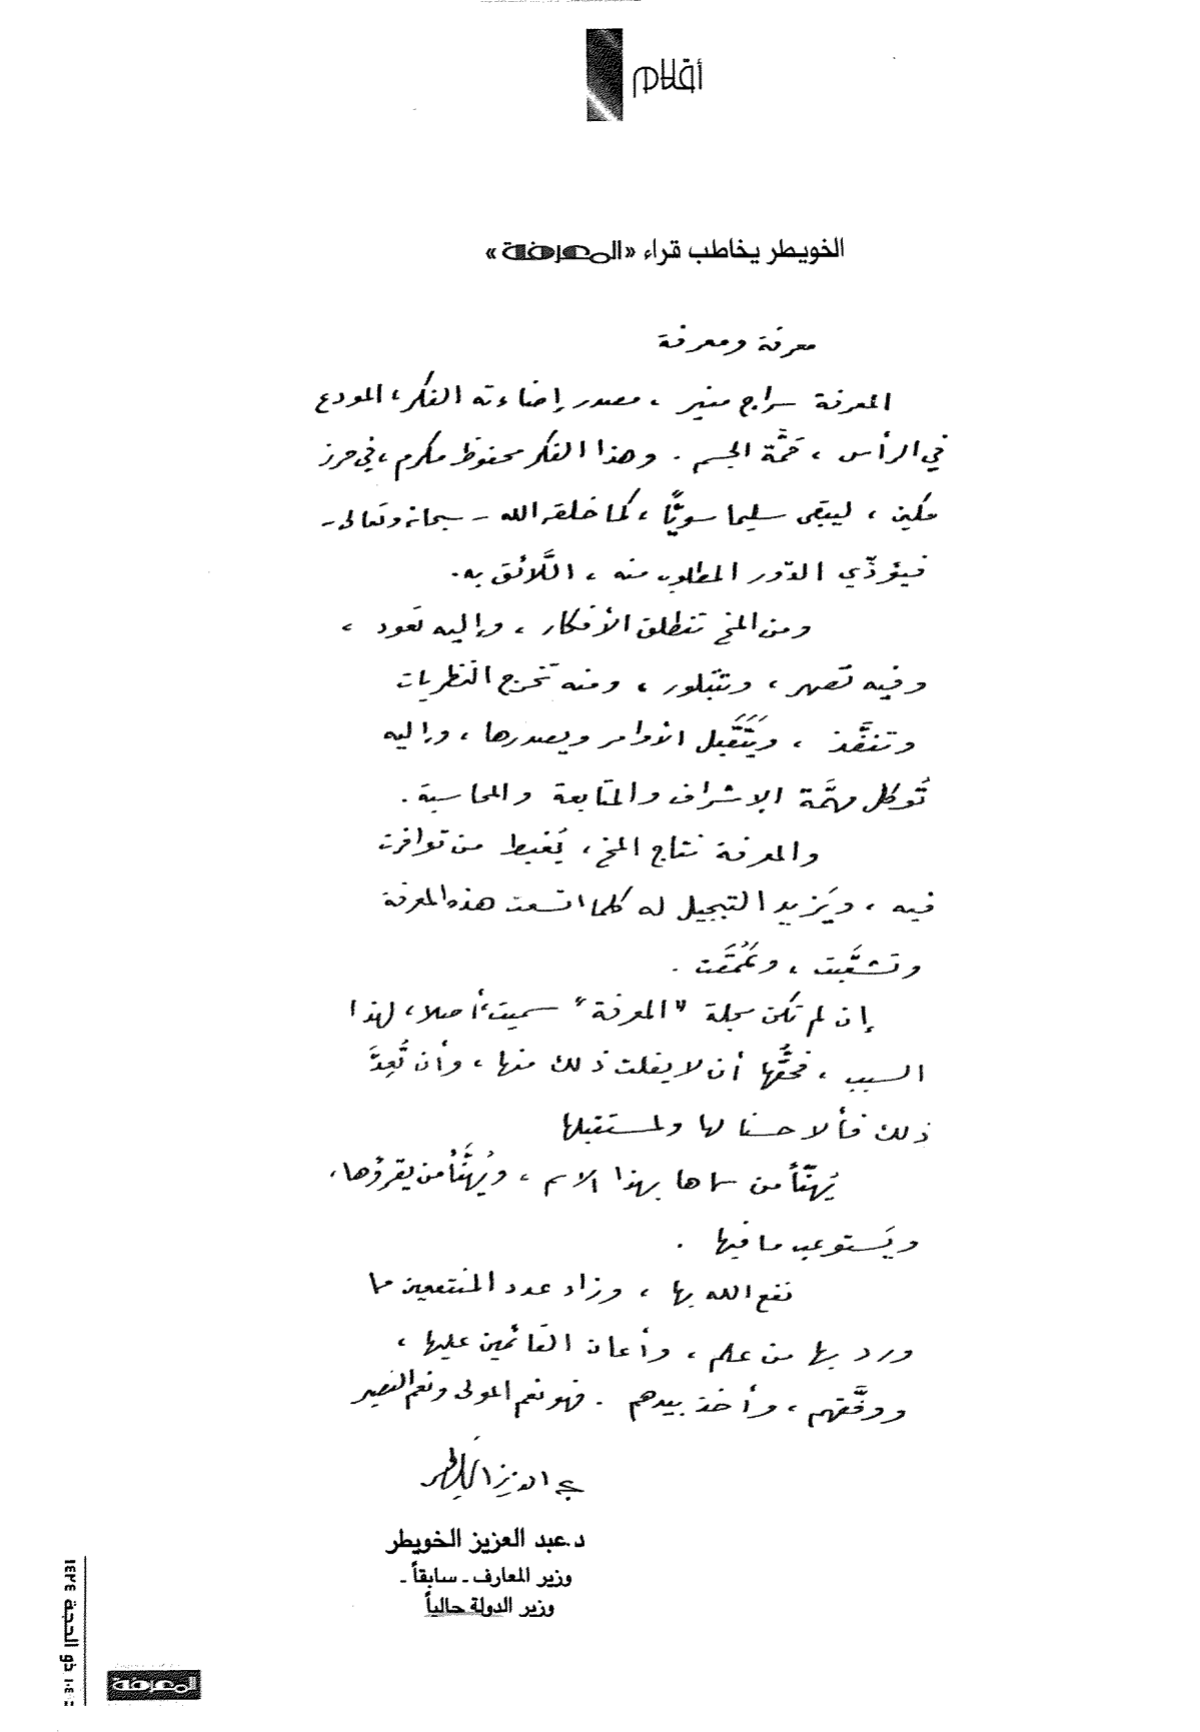 أقلام
الخويطر يخاطب قراء «المعرفة»
معرفة ومعرفة
المعرفة سراج منير ، مصدر إضاءته الفكر ، المودع
في الرأس ، قمَّة الجسم . وهذا الفكر محفوظ مكرم ، في حرز
مكين ، ليبقى سليما سويًّا ، كما خلقه الله - سبحانه وتعالى -
فيؤدّي الدّور المطلوب منه ، اللَّائق به .
ومن المخ تنطلق الأفكار ، وإليه تَعود ،
وفيه تصهر ، وتتبلور ، ومنه تخرج النظريات
وتنفَّذ ، ويَتَقَبَّل الأوامر ويصدرها ، وإليه
تُوكل مهمَّة الإشراف والمتابعة والمحاسبة .
والمعرفة نتاج المخ ، يُغبط من توافرت
فيه ، ويَزيد التبجيل له كلما اتسعت هذه المعرفة
وتشعَّبت ، وعَمُقَت .
إن لم تكن مجلة "المعرفة" سميت ، أصلا ، لهذا
السبب ، فحقُّها أن لا يفلت ذلك منها ، وأن تُعِدَّ
ذلك فألا حسنا لها ولمستقبلها
يُهنّأ من سماها بهذا الاسم ، ويُهنَّأ من يقرؤها ،
ويَستوعب ما فيها .
نفع الله بها ، وزاد عدد المنتفعين مما
ورد بها من علم ، وأعان القائمين عليها ،
ووفَّقهم ، وأخذ بيدهم . فهو نعم المولى ونعم النصير
عبد العزيز الخويطر
د.عبد العزيز الخويطر
وزير المعارف ـ سابقاً ـ
وزير الدولة حالياً
ذو الحجة ١٤٢٤
المعرفة